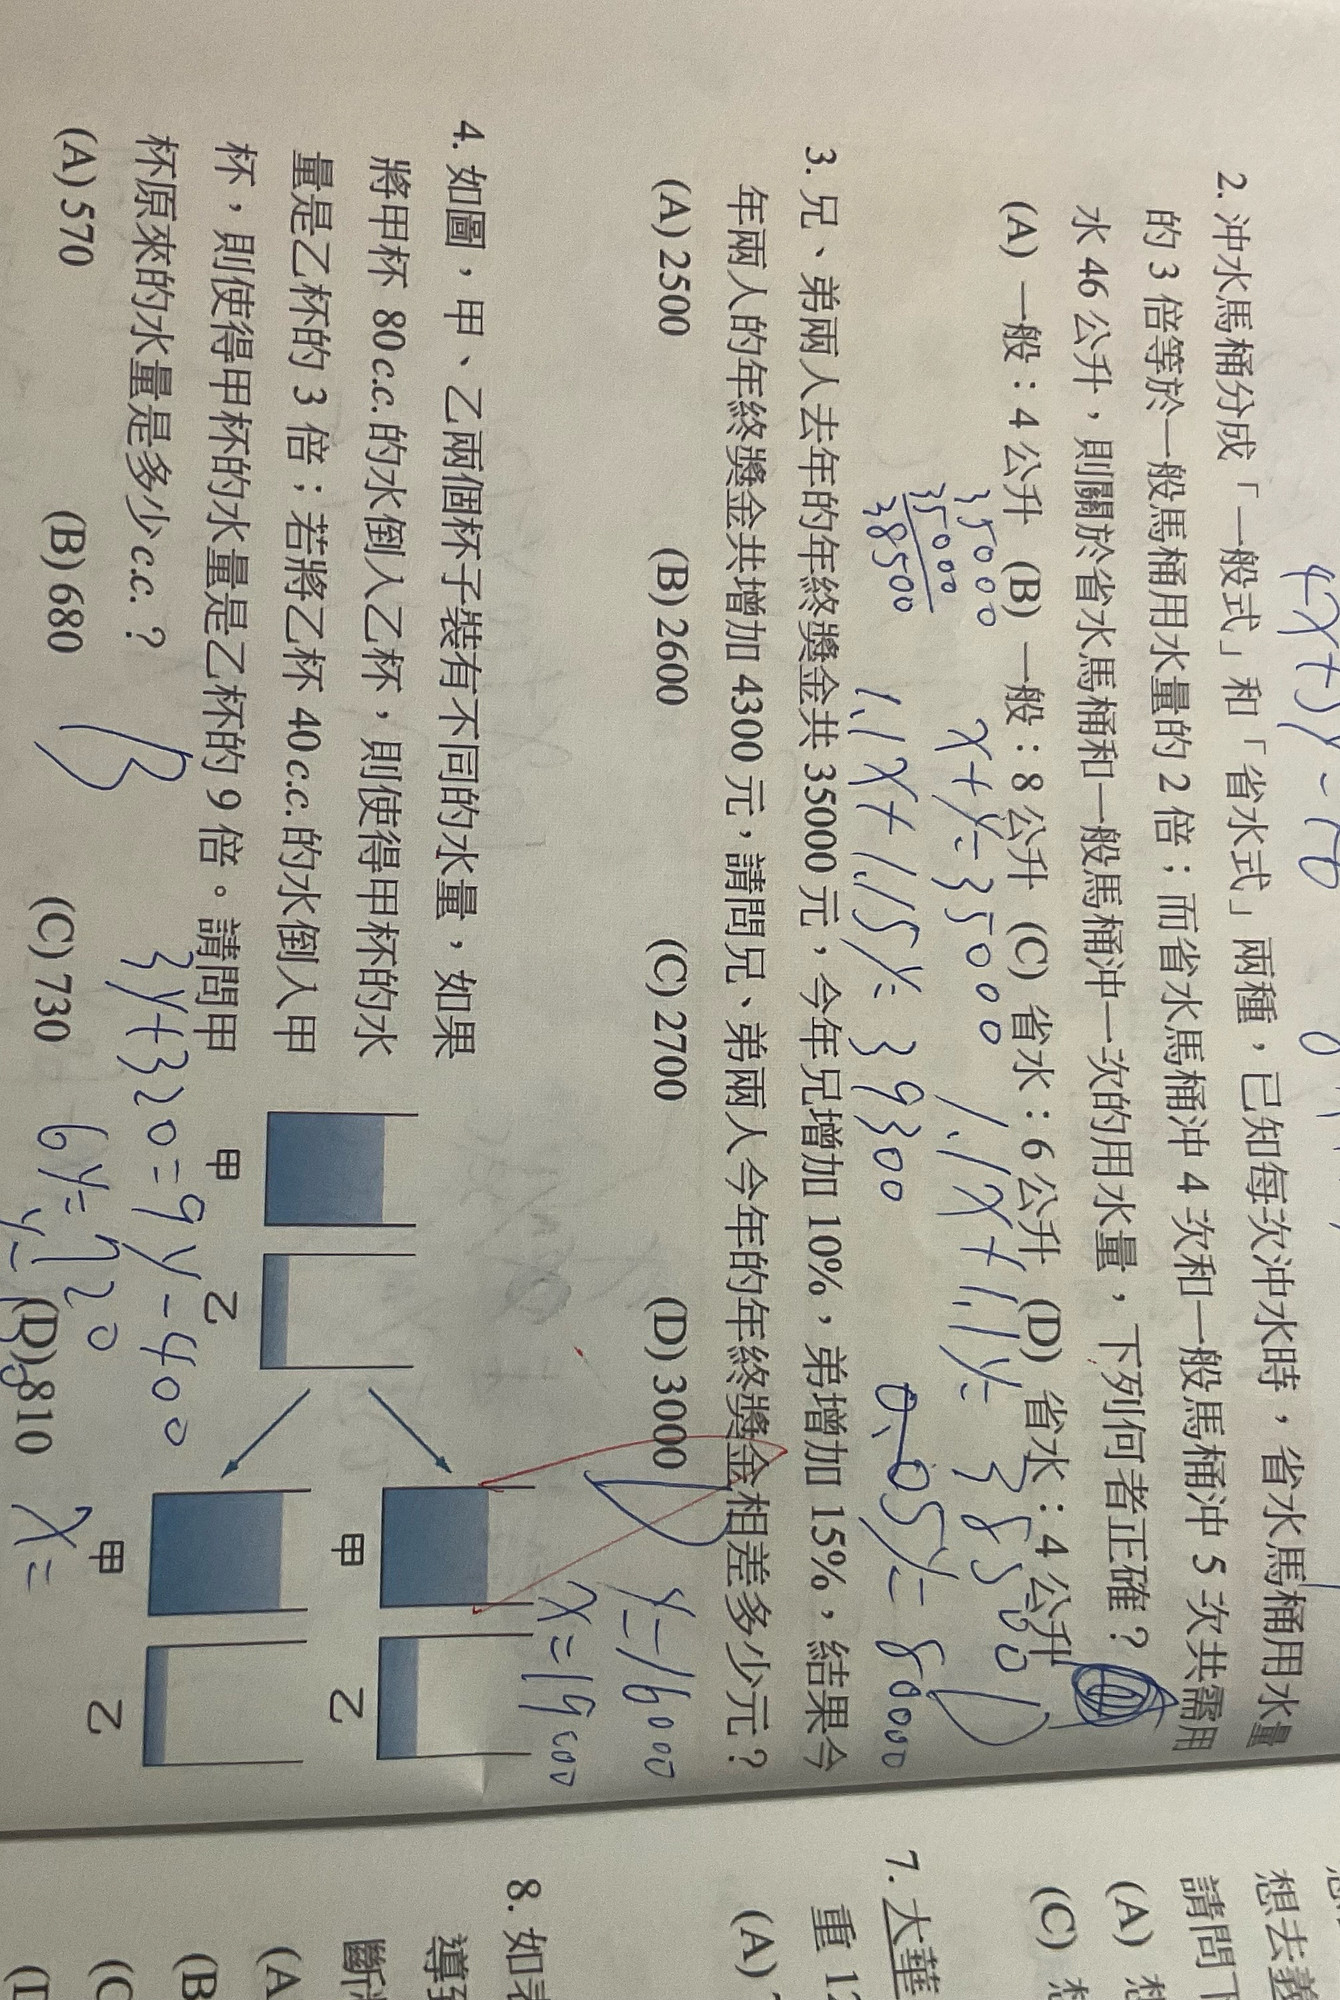 4x+5y=170
2. 沖水馬桶分成「一般式」和「省水式」兩種，已知每次沖水時，省水馬桶用水量
的 3 倍等於一般馬桶用水量的 2 倍；而省水馬桶沖 4 次和一般馬桶沖 5 次共需用
水 46 公升，則關於省水馬桶和一般馬桶沖一次的用水量，下列何者正確？
(A) 一般：4 公升 (B) 一般：8 公升 (C) 省水：6 公升 (D) 省水：4 公升
35000 x+y=35000 1.1x+1.1y=38500
35000
38500 1.1x+1.15y=39300 0.05y=80000
3. 兄、弟兩人去年的年終獎金共 35000 元，今年兄增加 10%，弟增加 15%，結果今
年兩人的年終獎金共增加 4300 元，請問兄、弟兩人今年的年終獎金相差多少元？
(A) 2500 (B) 2600 (C) 2700 (D) 3000
y=16000
x=19000
4. 如圖，甲、乙兩個杯子裝有不同的水量，如果
將甲杯 80c.c. 的水倒入乙杯，則使得甲杯的水
量是乙杯的 3 倍；若將乙杯 40c.c. 的水倒入甲
杯，則使得甲杯的水量是乙杯的 9 倍。請問甲
杯原來的水量是多少 c.c.？
甲 乙
甲 乙
甲 乙
B
3y+320=9y-400
6y=720
(A) 570 (B) 680 (C) 730 (D) 810
x=
想去義
請問下
(A) 想
(C) 想
7. 大華
重 12
(A)
8. 如表
導致
斷
(A
(B
(C
(D